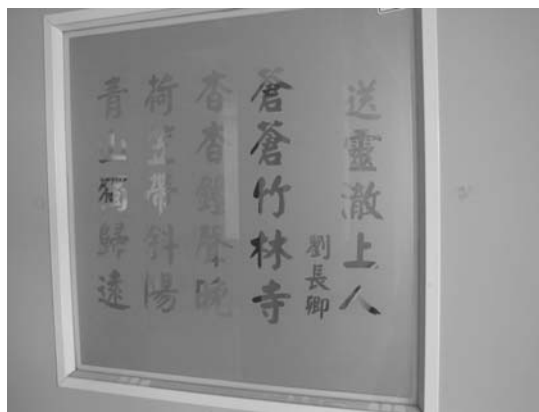 送靈澈上人
劉長卿
蒼蒼竹林寺
杳杳鐘聲晚
荷笠帶斜陽
青山獨歸遠